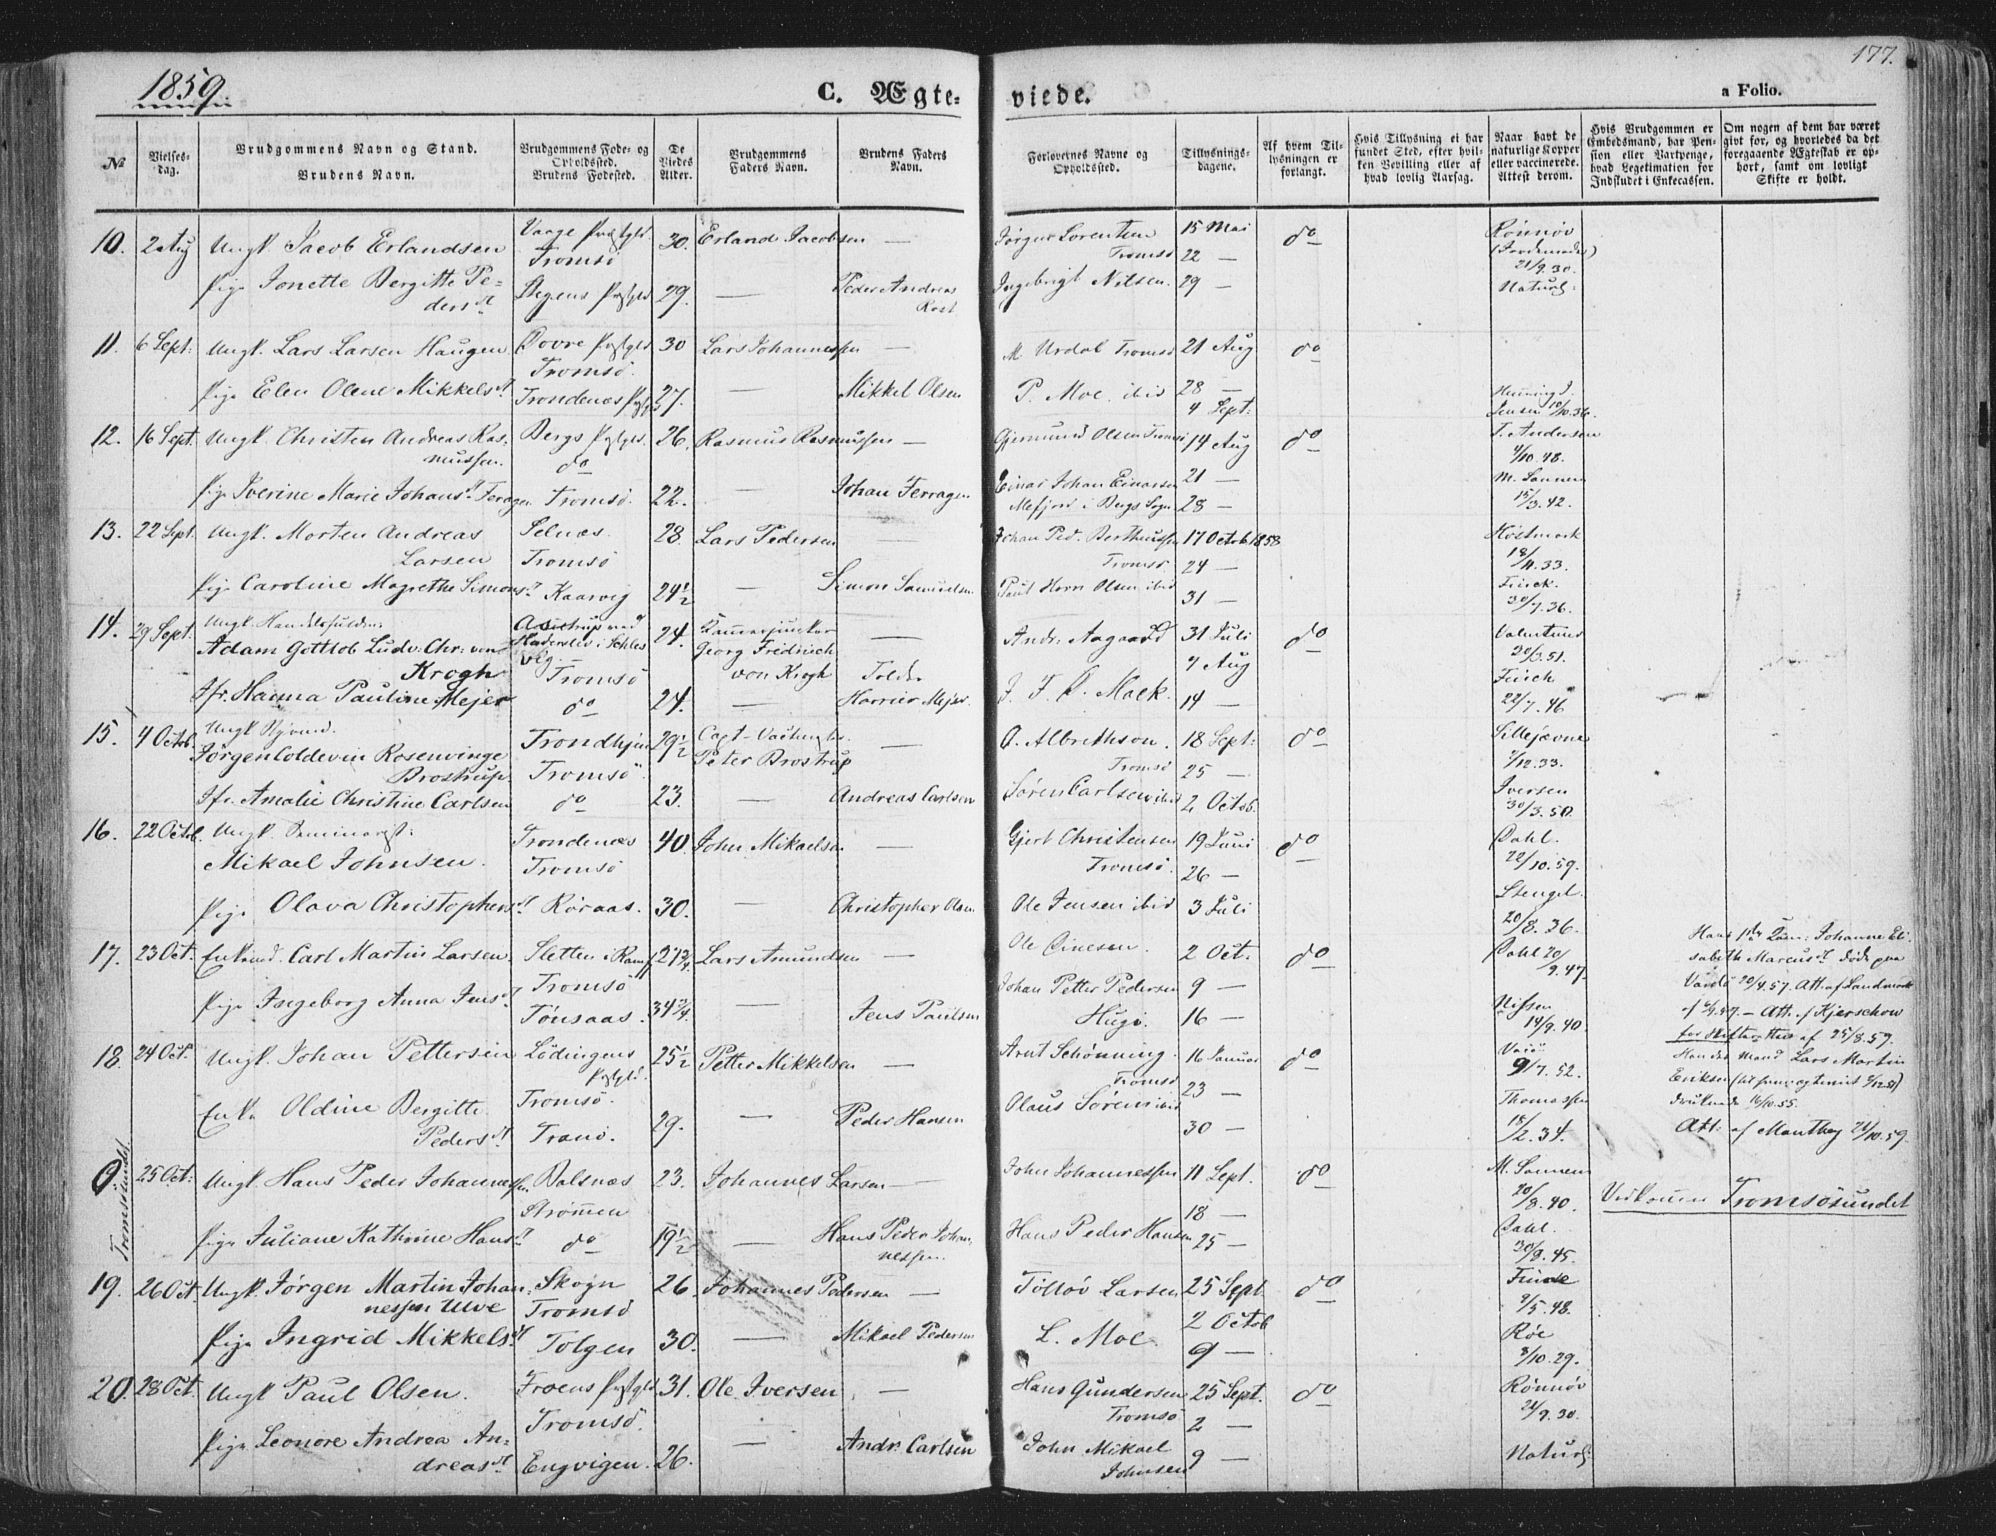 1859.
C. Ægte-
viede.
177.
a Folio.
№
Vielses-
dag.
Brudgommens Navn og Stand.
Brudens Navn.
Brudgommens Føde- og
Opholdssted.
Brudens Fødested.
De
Viedes
Alder.
Brudgommens
Faders Navn.
Brudens Faders
Navn.
Forlovernes Navne og
Opholdssted.
Tillysnings-
dagene.
Af hvem Til-
lysningen er
forlangt.
Hvis Tillysning ei har
fundet Sted, efter hvil-
ken Bevilling eller af
hvad lovlig Aarsag.
Naar havt de
naturlige Kopper
eller vaccinerede.
Attest derom.
Hvis Brudgommen er
Embedsmand, har Pen-
sion eller Vartpenge,
hvad Legetimation for
Indskudet i Enkecassen.
Om nogen af dem har været
gift for, og hvorledes da det
foregaaende Ægteskab er op-
hørt, samt om lovligt
Skifte er holdt.
10. 2 Aug Ungk. Jacob Erlandsen Vaage Præstgld. 30. Erland Jacobsen — Jørgen Lorentzen 15 Mai do Rönnöv
Tromsö Tromsö 22 —
21/9.30.
Pige Jonette Bergitte Pe- Stegens Præstgld 29. — Peder Andreas Ingebrigt Nilsen. 29 — Naturl:
dersdt Rost
11. 6 Sept: Ungk. Lars Larsen Haugen Dovre Præstgld 30 Lars Johannessen — M. Urdal Tromsö 21 Aug do
Tromsö.
Pige Elen Olene Mikkelsdt Trondenæs 27. — Mikkel Olsen P. Moe. ibid 28 —
4 Sept: Jensen 10/10.36.
12. 16 Sept. Ungk. Christen Andreas Ras- Bergs Præstgld. 26. Rasmus Rasmussen — Gjermund Olsen Tromsö 14 Aug do T. Andersen
mussen. do 4/10.48.
Pige Iverine Marie Johansdt Ferragen Tromsö. 22. — Johan Ferragen Einar Johan Einarsen 21 —
Mefjord i Bergs Sogn 28 — 15/3.42.
13. 22 Sept. Ungk. Morten Andreas Selnæs. 28. Lars Pedersen — Johan Ped. Berthussen 17 Octob 1858 Høstmark
Larsen Tromsö Tromsö. 24 — 18/11.33.
Pige Caroline Magrethe Simonsdt Kaarvig 24½ — Simon Samuelsen Paul Horn Olsen ibid 31 — 30/7.36.
14. 29 Sept. Ungk. Handelsfuldm: Aastrup ved 24. Kammerjunker — Andr. Aagaard 31 Juli do
Adam Gottlob Ludv. Chr. von Haderslev i Schles Georg Fredrich 7 Aug 20/3.51.
Krogh vig. von Krogh Tolder
Tromsö
Jfr. Hanna Pauline Mejer do 24. — Harrier Mejer. J. F. D. Mack. 14 — 22/7.46
15. 4 Octob. Ungk.
Jørgen Coldevin Rosenvinge Trondhjem 29½ Capt. — A. Albrethson. 18 Sept: do
Brostrup Tromsö. Peter Brostrup Tromsö 25 — 1/12.33.
Jfr. Amalie Christine Carlsen do 23. — Andreas Carlsen Søren Carlsen ibid 2 Octob. Iversen
30/3.50.
16. 22 Octob. Ungk. Seminarist: Trondenæs 40. John Mikaelsen — Gjert Christensen 19 Juni do Dahl.
Mikael Johnsen. Tromsö Tromsö. 26 — 22/10.59.
Pige Olava Christophersdt Röraas. 30. — Christopher Olsen Ole Jensen ibid 3 Juli Stengel.
20/8.36.
17. 23 Oct. Enkemd. Carl Martin Larsen. Sletten i Ramf 27¾ Lars Amundsen — Ole Einesen. 2 Oct. do Dahl 20/9.47 Hans 1ste Qvin: Johanne Eli-
sabeth Marcusdt døde paa
Tromsö Vardö 20/4.57. Att. af Landmark
Pige Ingeborg Anna Jensdt Tönsaas. 34¾ — Jens Paulsen Johan Petter Pedersen 9 — Nissen
Hugi. 16 — 14/9.40. Att. f. Kjerschow
for Skifte af 25/8.59.
18. 24 Oct. Ungk. Johan Pettersen Lödingens 25½ Petter Mikkelsen — Arnt Schönning. 16 Januar do Hendes Mand Lars Martin
Præstgld. Tromsö 23 — 9/7.52. Eriksen
Tromsö.
Enke Oldine Bergitte 29. — Peder Hansen Olaus Sörens ibid Thomassen druknede 16/10.55.
Pedersdt Tranö. 30 — 18/2.34. Att: af Manthey 24/10.59.
9. Tromsösundet. 25 Oct: Ungk. Hans Peder Johannessen Balsnæs 23. Johannes Larsen — John Johannessen 11 Sept. do
Strömmen 18 — 20/8.40. Vedkommer Tromsösundet
Pige Juliane Kathrine Hansdt do 19½ — Hans Peder Johan- Hans Peder Hansen 25 — Dahl.
nessen. 30/9.45.
19. 26 Oct. Ungk. Jörgen Martin Johan- Skogn 26. Johannes Pedersen — Tölløv Larsen 25 Sept do
nessen Ulve Tromsö 2 Octob 9/5.48.
Pige Ingrid Mikkelsdt Tolgen 30. — Mikael Pedersen L. Moe 9 — Röe
3/10.29.
20. 28 Oct. Ungk Paul Olsen. Froens Præstgld 31. Ole Iversen — Hans Gundersen 25 Sept. do Rönnöv
Tromsö. Tromsö 2 — 21/9.30.
Pige Leonore Andrea An- Engvigen. 26. — Andr. Carlsen John Mikael 9 — Naturl:
dreasdt Johnsen